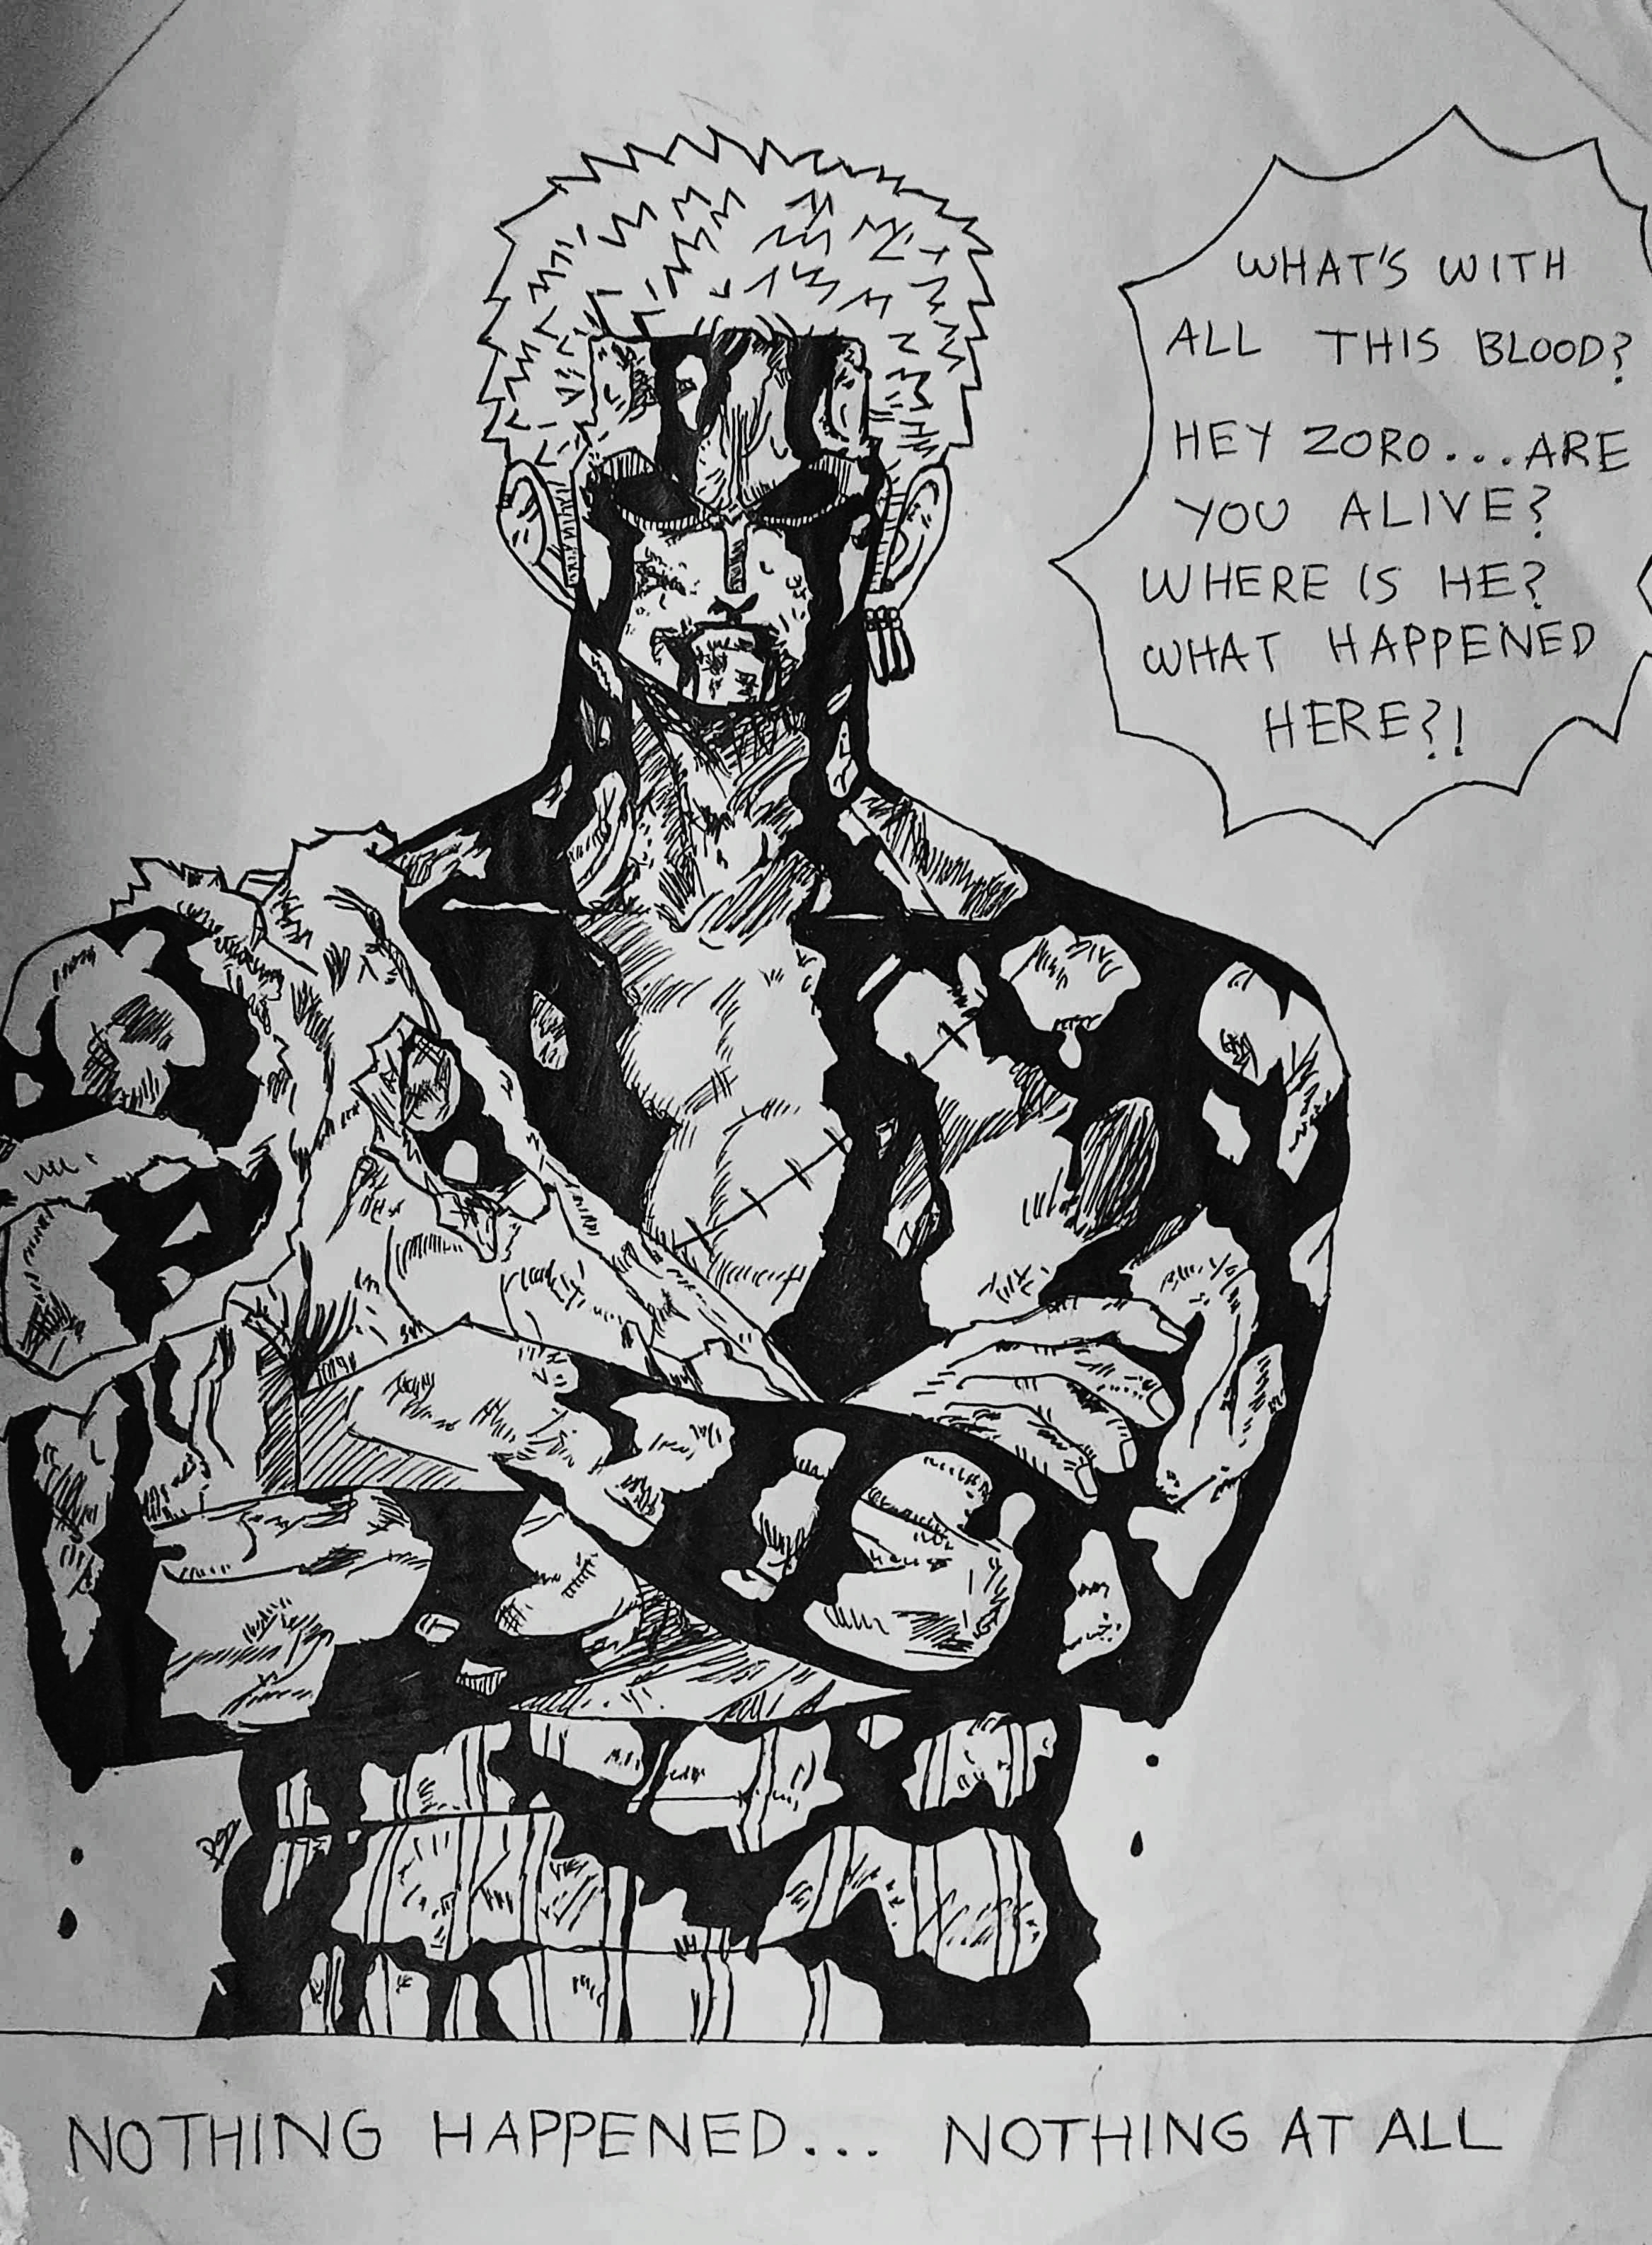 WHAT'S WITH
ALL THIS BLOOD?
HEY ZORO...ARE
YOU ALIVE?
WHERE IS HE?
WHAT HAPPENED
HERE?!
NOTHING HAPPENED... NOTHING AT ALL